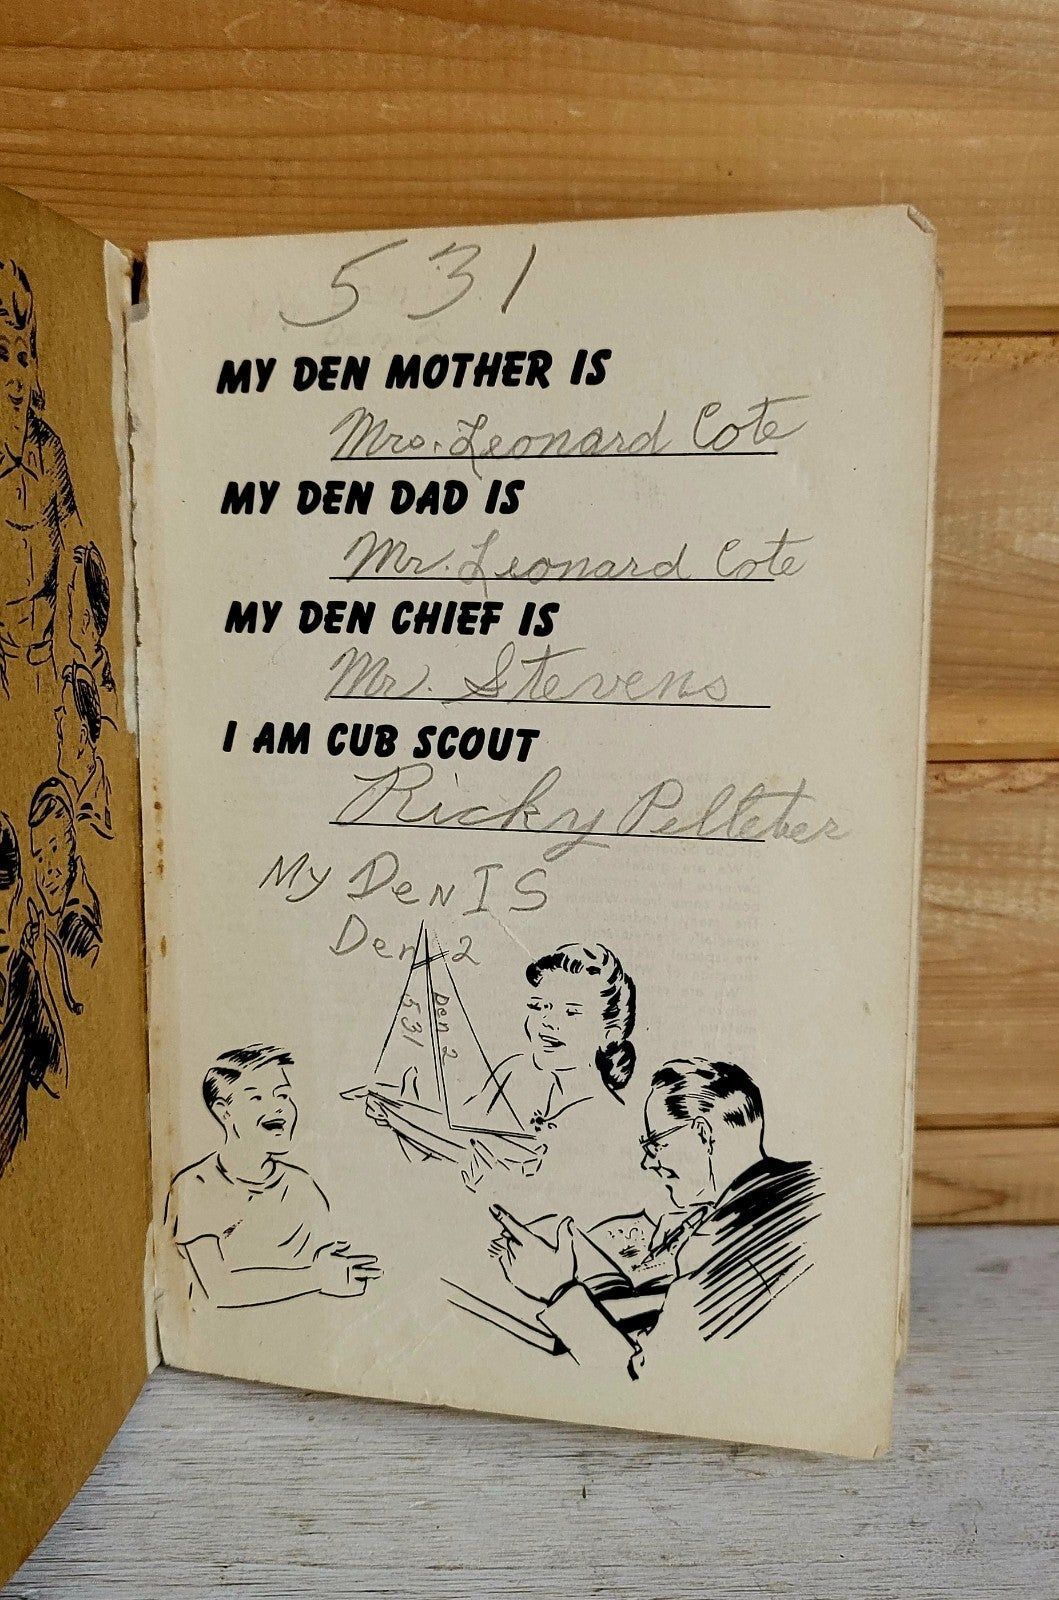 531
MY DEN MOTHER IS
Mrs. Leonard Cote
MY DEN DAD IS
Mr. Leonard Cote
MY DEN CHIEF IS
Mr. Stevens
I AM CUB SCOUT
Ricky
My Den IS
Den 2
531
Den 2